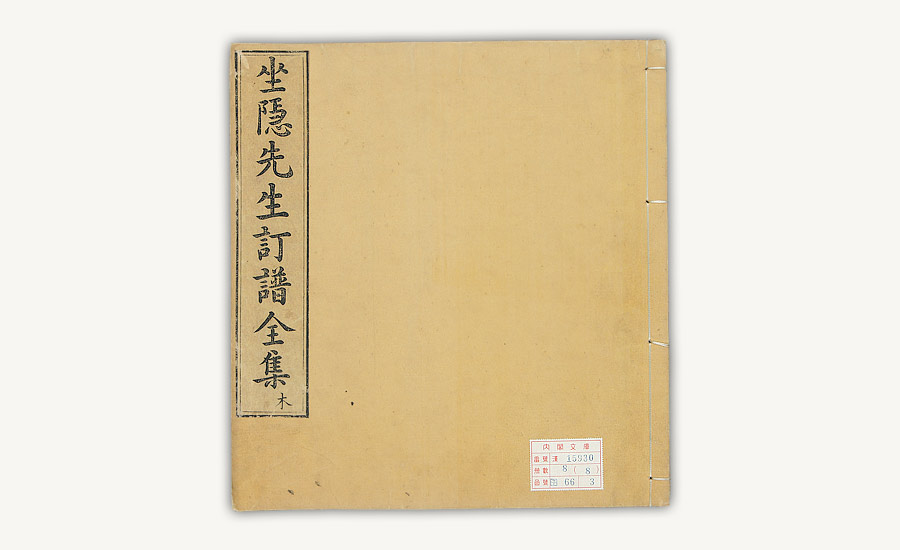 坐隱先生訂譜全集
木
内閣文庫
番號 漢 15930
冊數 8 (8)
函號 66 3